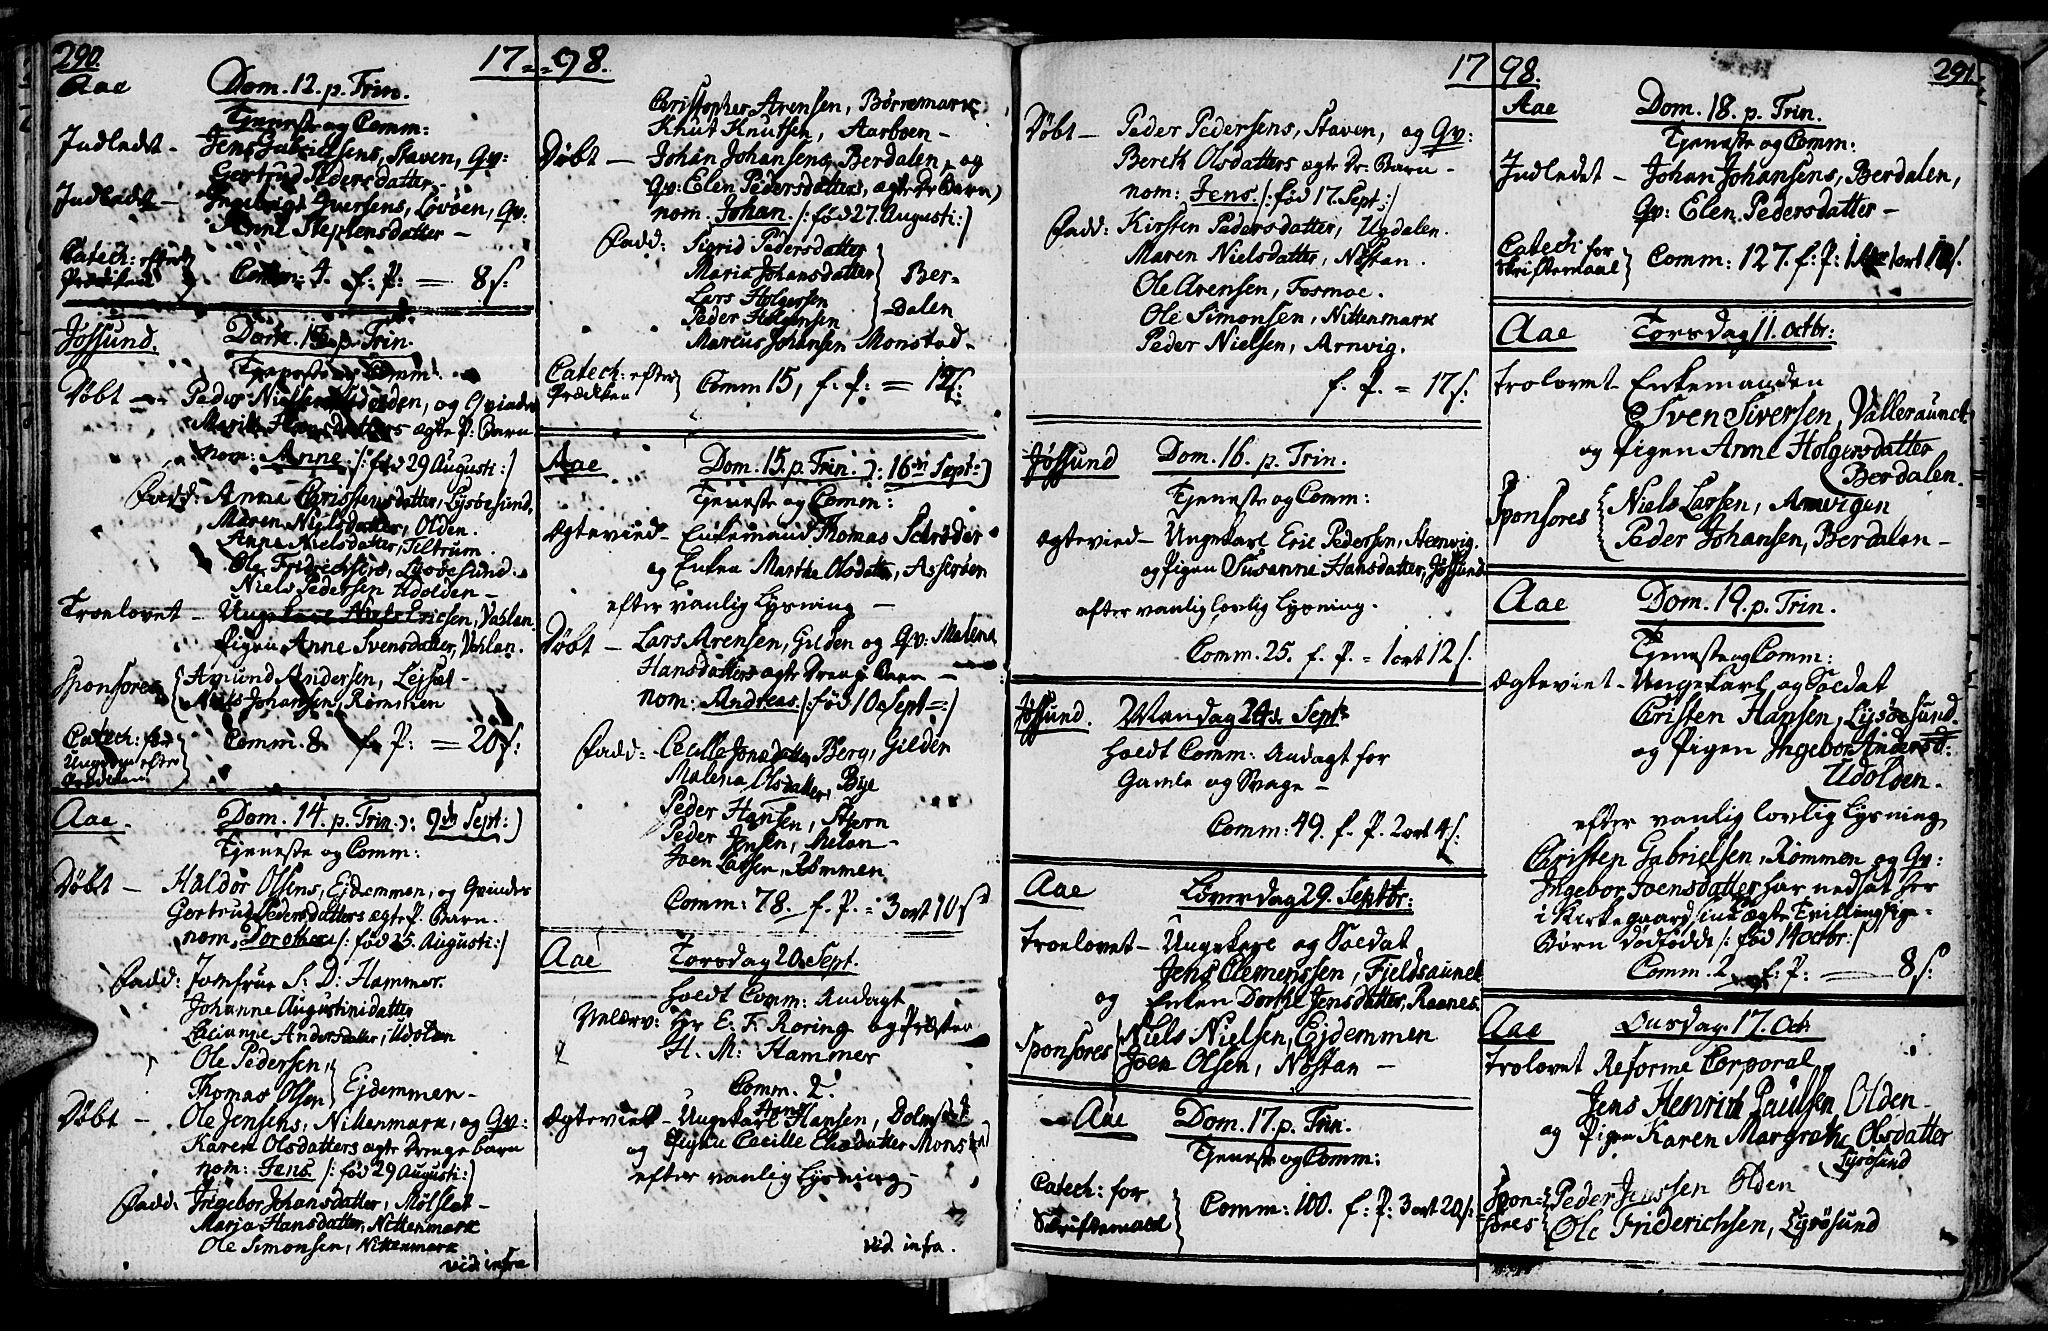 290.
17 = = 98.
Aae
Dom. 12. p. Trin.
Tjeneste og Comm:
Indledet - Jens Gabrielsens, Staven, Qv:
Gertrud Pedersdatter -
Indledet - Ingebrigt Iversens, Lövöen, Qv:
Anne Stephensdatter -
Catech: efter
Prædiken } Comm: 4. f. P: = 8 s:
Jössund.
Dom. 13. p. Trin.
Tjeneste og Comm:
Döbt - Peder Nielsens Udolden, og Qvindes
Marith Hansdatters ægte P: Barn
nom: Anne /: föd 29 Augusti :/
Fadd: Anne Christensdatter, Lysöesund,
Maren Nielsdatter, Olden.
Anne Nielsdatter, Teltrum.
Ole Fridrichsens, Lysöesund.
Niels Pedersen Udolden -
Troelovet - Ungekarl Niels Ericsen, Vahlan.
Pigen Anne Svensdatter, Vahlan.
Sponsores { Amund Andersen, Lejsæt -
Niels Johansen, Römmen
Catech: for
Ungdom efter
Prædiken } Comm. 8. f. P: = 20 s:
Aae.
Dom. 14. p. Trin. ): 9de Sept:)
Tjeneste og Comm:
Döbt - Haldor Olsens, Ejdemmen, og Qvindes
Gertrud Pedersdatters ægte P. Barn.
nom. Dorothea /: föd 25. Augusti :/
Fadd: Jomfrue S. D: Hammer.
Johanne Augustinidatter
Andersdatter, Udolden
Ole Pedersen,
Thomas Olsen } Ejdemmen -
Döbt - Ole Jensens, Nittenmark, og Qv:
Karen Olsdatters ægte Drengebarn
nom: Jens /: föd 29 Augusti :/
Fadd: Ingebor Johansdatter, Mölslet -
Maria Hansdatter, Nittenmark
Ole Simonsen, Nittenmark
vid: infra
Christopher Arensen, Börremark
Knut Knutsen, Aarboen -
Döbt - Johan Johansens Berdalen, og
Qv: Elen Pedersdatters, ægte Dr: Barn
nom. Johan. /: föd 27. Augusti :/
Fadd: Sigrid Pedersdatter
Maria Johansdatter
Lars Holgersen
Peder Holgersen } Ber-
Dalen
Marcus Johansen Monstad -
Catech: efter
Prædiken } Comm 15, f. P: = 12 s:
Aae
Dom. 15. p. Trin. ): 16de Sept:)
Tjeneste og Comm:
Ægteviet - Enkemand Thomas Schröder
og Enken Marthe Olsdatter, Asseröen
efter vanlig Lysning -
Döbt - Lars Arensen, Gilden og Qv: Malena
Hansdatters ægte Drenge Barn -
nom: Andreas /: föd 10 Sept = :/
Fadd: Cecille Jonsdatter Berg, Gilden
Malena Olsdatter, Bye
Peder Hansen, Stjern
Peder Jensen, Melan -
Joen Larsen, Römmen
Comm: 78. f. P. = 3 ort 10 s
Aae
Torsdag 20. Sept.
holdt Comm: Andagt
Hr E. F. Roring og Præsten
H. M: Hammer
Comm. 2.
Ægteviet - Ungekarl Hans Hansen, Dolm
og Pigen Cecille Monstad
efter vanlig Lysning -
vid. infra.
17 98.
291.
Döbt - Peder Pedersens, Staven, og Qv:
Bereth Olsdatters ægte Dr: Barn -
nom: Jens. /: föd 17. Sept :/
Fadd: Kirsten Pedersdatter, Ugdalen.
Maren Nielsdatter, Nöstan.
Ole Arensen, Fosmoe.
Ole Simonsen, Nittenmark
Peder Nielsen, Arnvig.
f. P. = 17 s:
Jössund
Dom. 16. p. Trin.
Tjeneste og Comm:
Ægteviet - Ungekarl Eric Pedersen, Steenvig.
og Pigen Susanne Hansdatter, Jössund
efter vanlig lovlig Lysning.
Comm. 25. f. P. = 1 ort 12 s.
Jössund.
Mandag 24de Septr
holdt Comm: Andagt for
Gamle og Svage -
Comm: 49. f. P. 2 ort 4 s:
Aae
Löverdag 29. Septbr:
Troelovet - Ungekarl og Soldat
Jens Clemenssen, Fieldsaunet
og Enken Dorthe Jensdatter, Raanes.
Sponsores { Niels Nielsen, Ejdemmen
Joen Olsen, Nöstan -
Aae
Dom. 17. p. Trin.
Tjeneste og Comm:
Catech: for
Skriftemaal } Comm: 100. f. P: 3 ort 20 s:
Aae
Dom. 18. p. Trin.
Tjeneste og Comm:
Indledet - Johan Johansens, Berdalen,
Qv: Elen Pedersdatter -
Catech: for
Skriftemaal } Comm: 127. f. P: 1 ort
Aae
Torsdag 11. Octbr:
Trolovet - Enkemanden
Sven Siversen, Valleraunet
og Pigen Anne Holgersdatter
Berdalen.
Sponsores { Niels Larsen, Arnvigen
Peder Johansen, Berdalen -
Aae
Dom. 19. p. Trin.
Tjeneste og Comm:
Ægteviet - Ungekarl og Soldat
Christen Hansen, Lysöesund.
og Pigen Ingebor Andersd:
Udolden.
efter vanlig lovlig Lysning
Christen Gabrielsen, Römmen og Qv:
Ingebor Joensdatter har nedsat her
i Kirkegaard sine ægte Tvilling Pige-
Börn Dödfödde /: föd 14 octbr :/
Comm. 2. f. P: = 8 s:
Aae
Onsdag 17. Oct
Trolovet Reforme Corporal
Jens Henrich Paulsen, Olden -
og Pigen Karen Margrethe Olsdatter
Lysösund
Spon-
sores { Peder Jenssen Olden
Ole Friderichsen, Lysösund